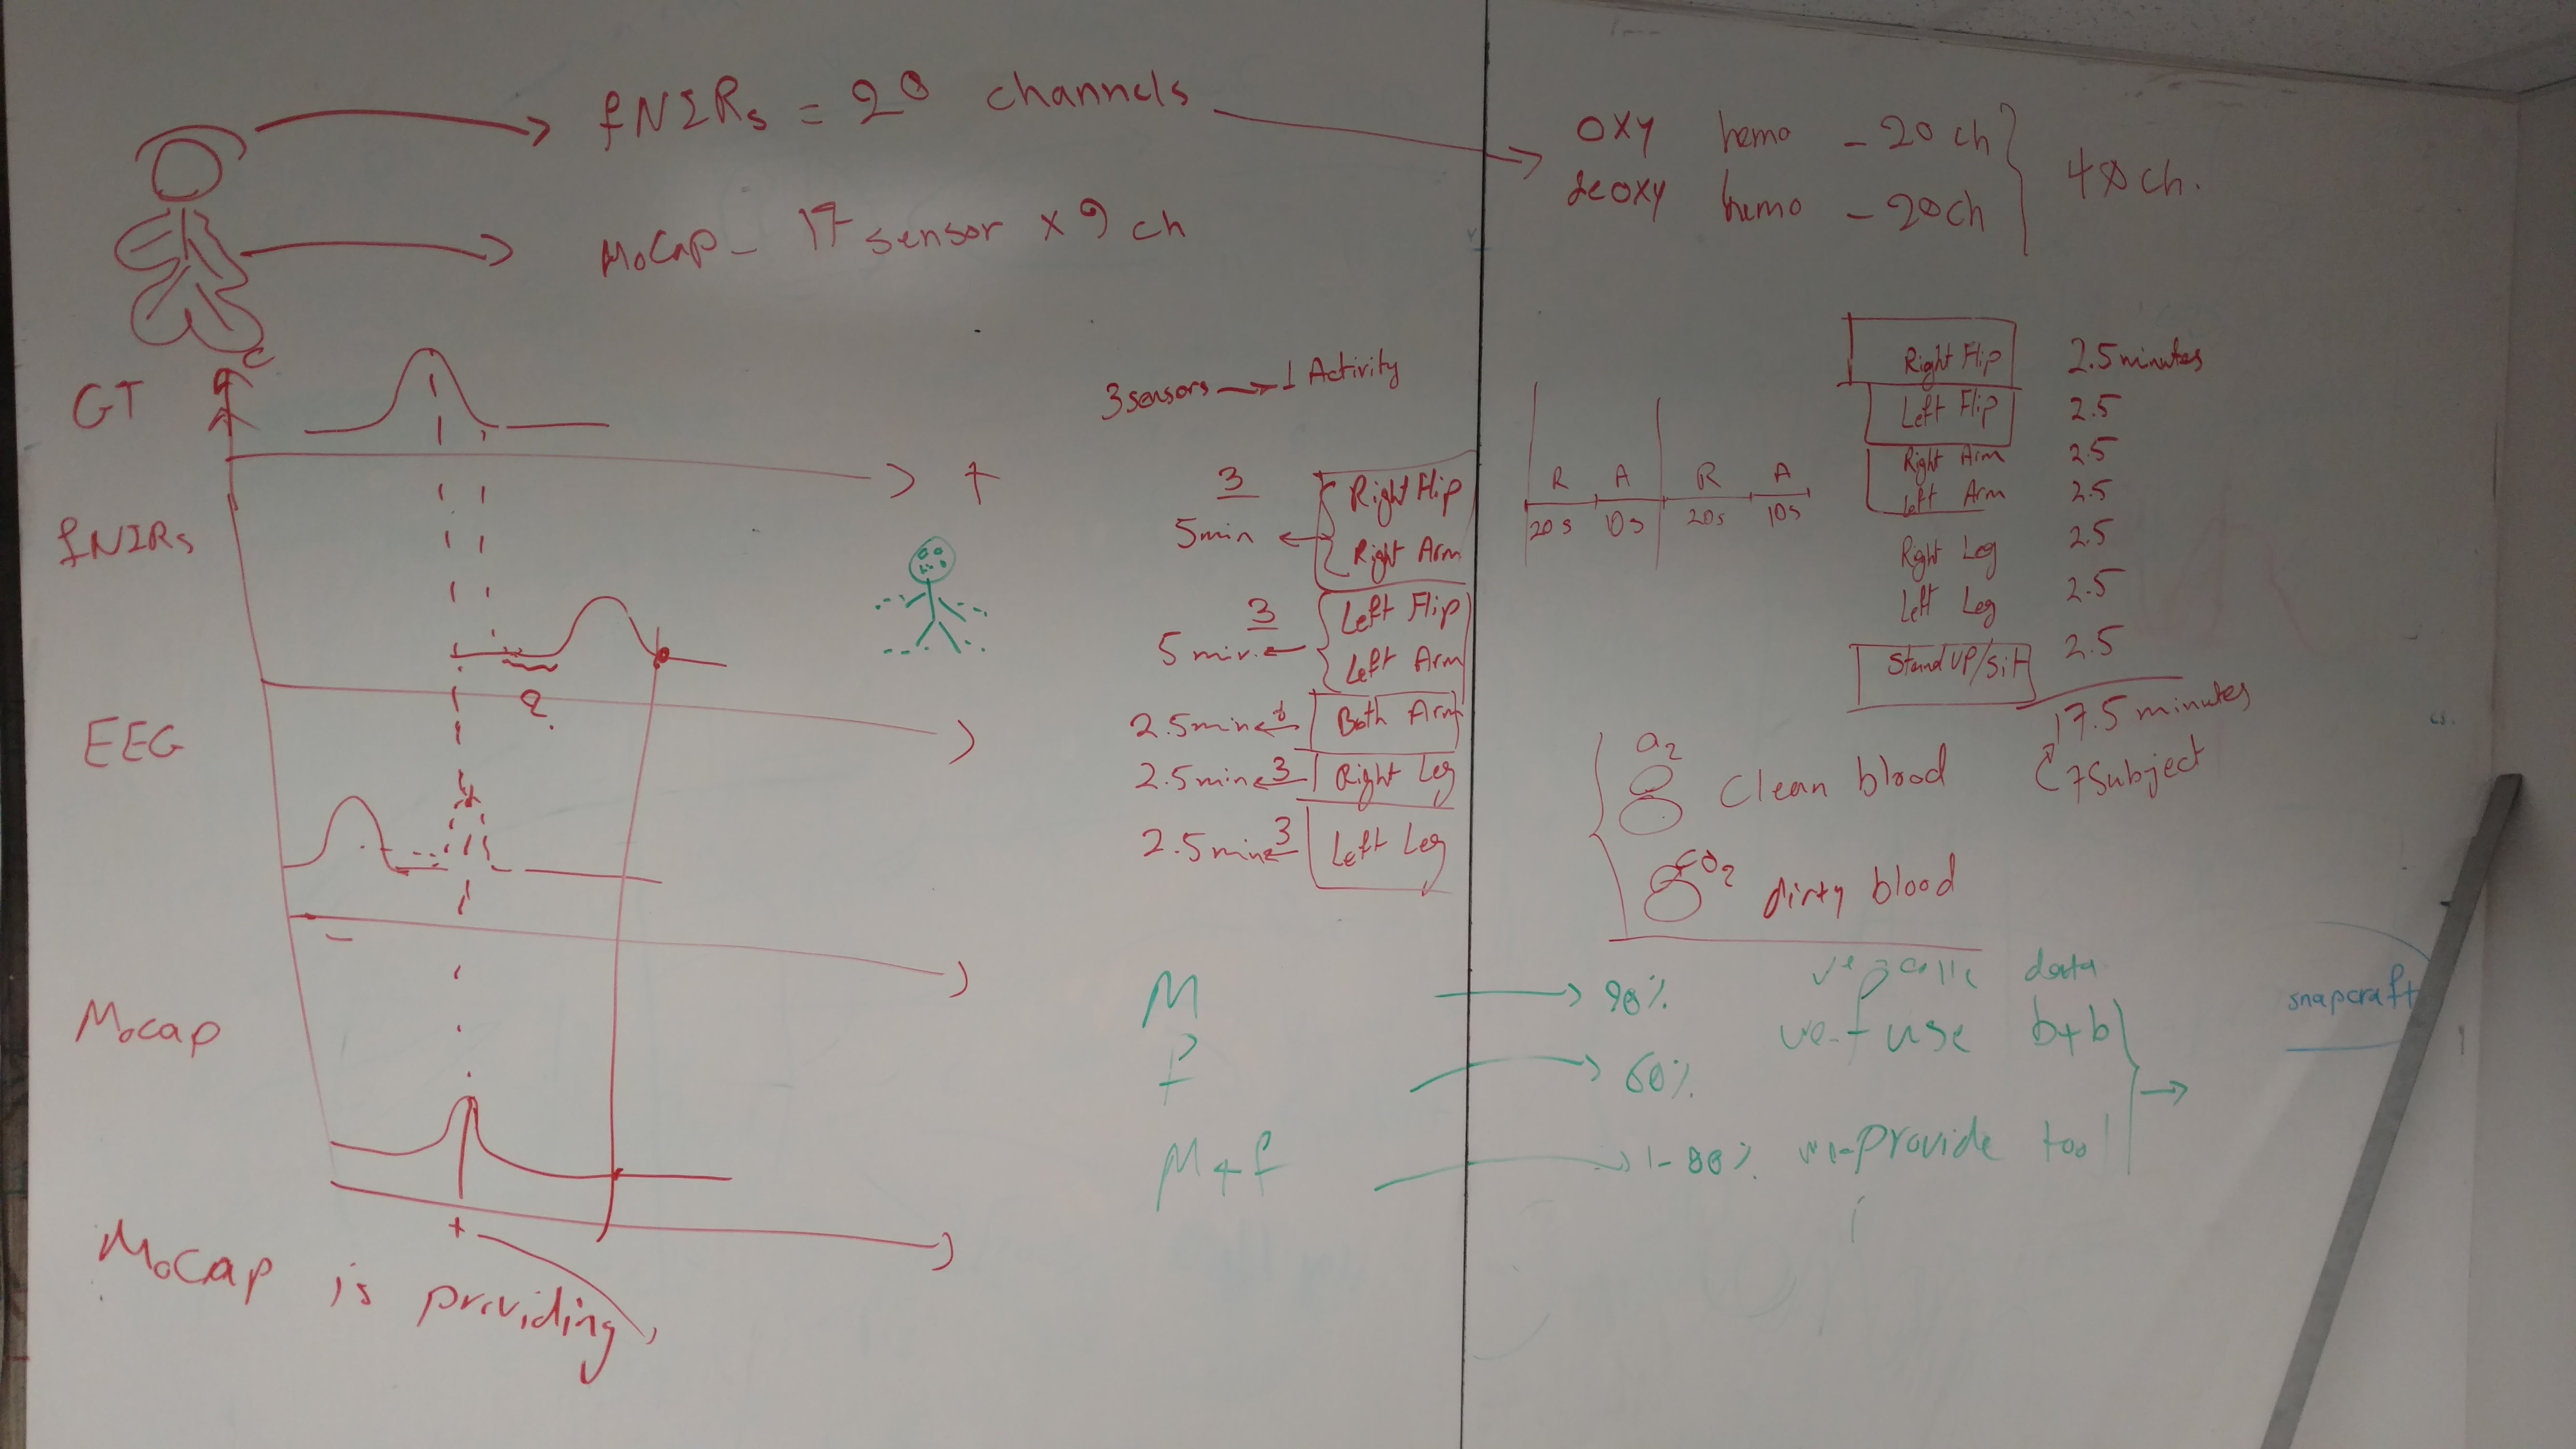 fNIRs = 20 channels
MoCap - 17 sensor x 9 ch
oxy hemo - 20 ch
deoxy hemo - 20 ch
40 ch.
GT
t
fNIRs
?
EEG
Mocap
MoCap is providing
3 sensors → 1 Activity
3
5 min ← Right Flip
Right Arm
3
5 min. ← Left Flip
Left Arm
2.5 min ← 6 Both Arm
2.5 min ← 3 Right Leg
2.5 min ← 3 Left Leg
R A R A
20s 10s 20s 10s
Right Flip 2.5 minutes
Left Flip 2.5
Right Arm 2.5
Left Arm 2.5
Right Leg 2.5
Left Leg 2.5
Stand UP/Sit 2.5
17.5 minutes
7 Subject
clean blood
CO2 dirty blood
M → 90%
f → 60%
M+f →
data
use b+b
provide tool
snapcraft